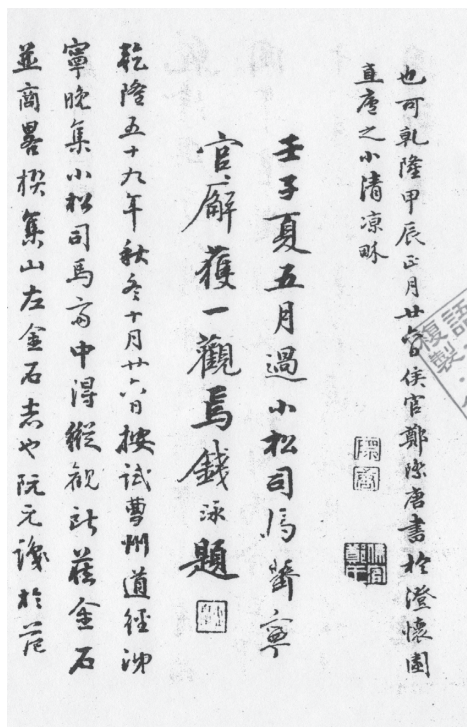 也可乾隆甲辰正月廿六日侯官鄭際唐書於澄懷園
直廬之小清涼畎
壬子夏五月過小松司馬濟寧
官廨獲一觀焉錢泳題
乾隆五十九年秋冬十月廿六日按試曹州道經沛
寧晚集小松司馬齋中得縱觀所藏金石
並商畧撰集山左金石志也阮元識於范